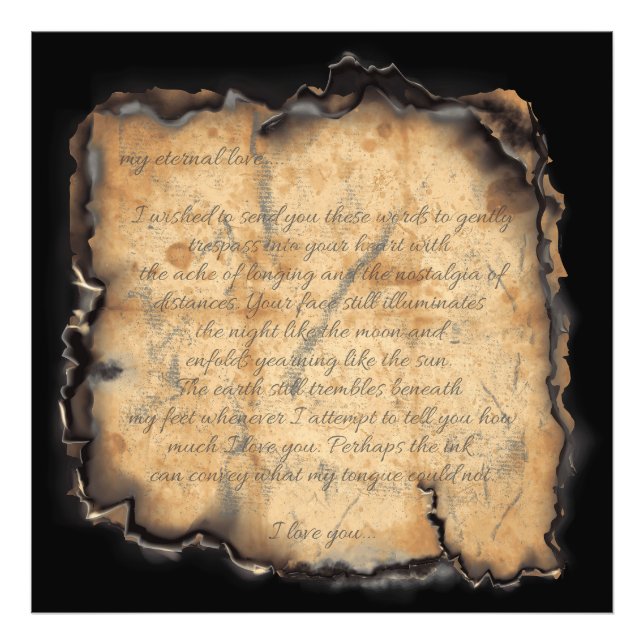 my eternal love....
I wished to send you these words to gently
trespass into your heart with
the ache of longing and the nostalgia of
distances. Your face still illuminates
the night like the moon and
enfolds yearning like the sun.
The earth still trembles beneath
my feet whenever I attempt to tell you how
much I love you. Perhaps the ink
can convey what my tongue could not.
I love you...